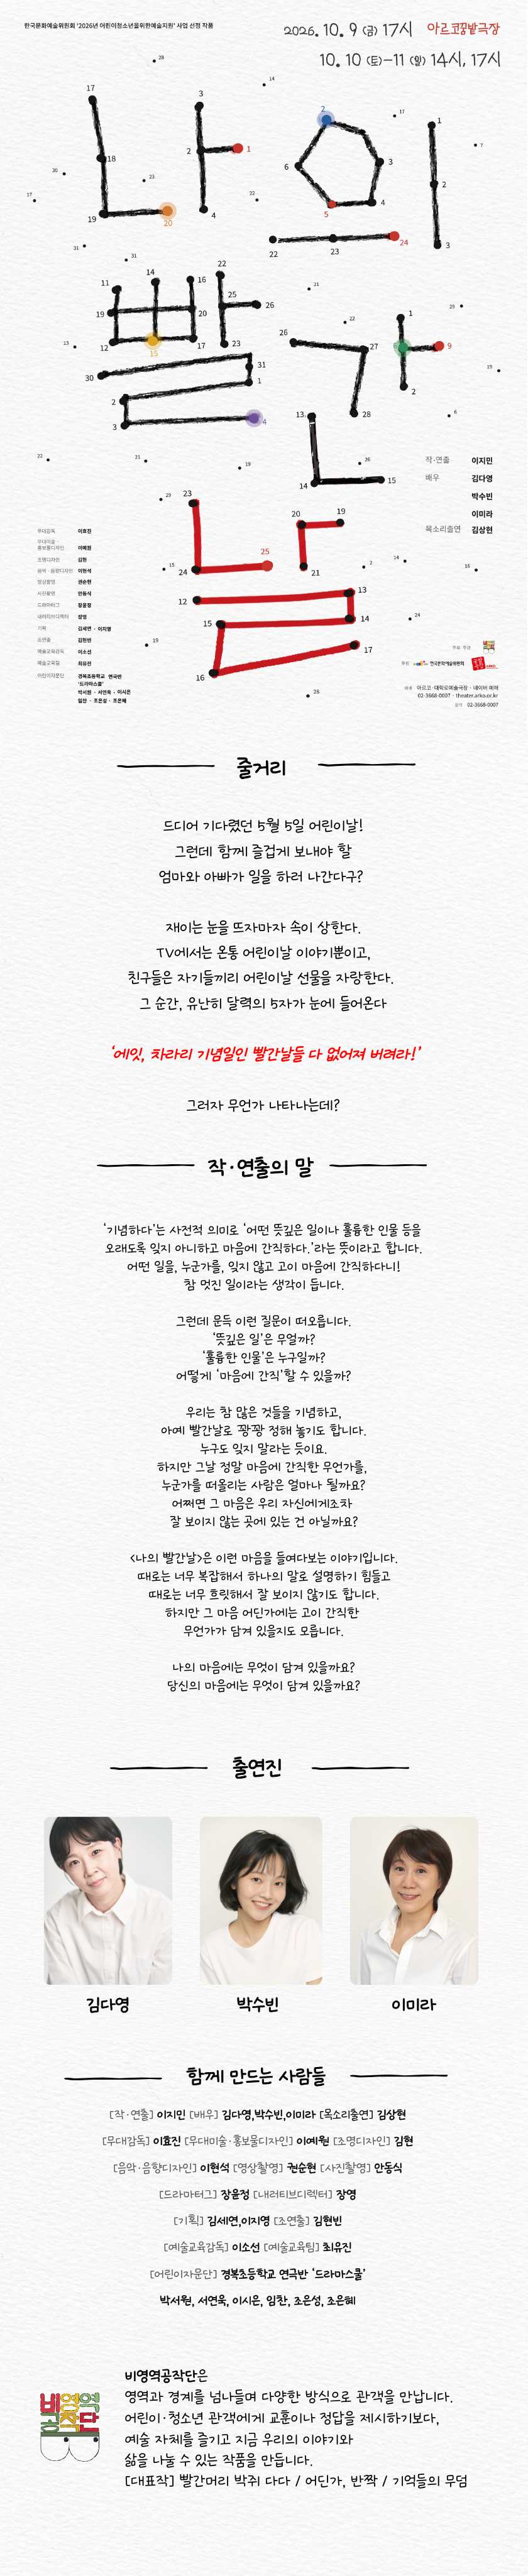 한국문화예술위원회 '2026년 어린이청소년을위한예술지원' 사업 선정 작품
2026. 10. 9 (금) 17시 아르코꿈밭극장
10. 10 (토)-11 (일) 14시, 17시
나의 빨간날
작·연출 이지민
배우 김다영
박수빈
이미라
목소리출연 김상현
무대감독 이효진
무대미술·홍보물디자인 이예원
조명디자인 김현
음악·음향디자인 이현석
영상촬영 권순현
사진촬영 안동식
드라마터그 장윤정
내러티브디렉터 장영
기획 김세연·이지영
조연출 김현빈
예술교육감독 이소선
예술교육팀 최유진
어린이자문단 경복초등학교 연극반
'드라마스쿨'
박서원·서연욱·이시은
임찬·조은성·조은혜
주최·주관
후원 한국문화예술위원회 ARKO
예매 아르코·대학로예술극장·네이버 예매
02-3668-0007·theater.arko.or.kr
문의 02-3668-0007
줄거리
드디어 기다렸던 5월 5일 어린이날!
그런데 함께 즐겁게 보내야 할
엄마와 아빠가 일을 하러 나간다구?
재이는 눈을 뜨자마자 속이 상한다.
TV에서는 온통 어린이날 이야기뿐이고,
친구들은 자기들끼리 어린이날 선물을 자랑한다.
그 순간, 유난히 달력의 5자가 눈에 들어온다
'에잇, 차라리 기념일인 빨간날들 다 없어져 버려라!'
그러자 무언가 나타나는데?
작·연출의 말
'기념하다'는 사전적 의미로 '어떤 뜻깊은 일이나 훌륭한 인물 등을
오래도록 잊지 아니하고 마음에 간직하다.'라는 뜻이라고 합니다.
어떤 일을, 누군가를, 잊지 않고 고이 마음에 간직하다니!
참 멋진 일이라는 생각이 듭니다.
그런데 문득 이런 질문이 떠오릅니다.
'뜻깊은 일'은 무얼까?
'훌륭한 인물'은 누구일까?
어떻게 '마음에 간직'할 수 있을까?
우리는 참 많은 것들을 기념하고,
아예 빨간날로 꽝꽝 정해 놓기도 합니다.
누구도 잊지 말라는 듯이요.
하지만 그날 정말 마음에 간직한 무언가를,
누군가를 떠올리는 사람은 얼마나 될까요?
어쩌면 그 마음은 우리 자신에게조차
잘 보이지 않는 곳에 있는 건 아닐까요?
<나의 빨간날>은 이런 마음을 들여다보는 이야기입니다.
때로는 너무 복잡해서 하나의 말로 설명하기 힘들고
때로는 너무 흐릿해서 잘 보이지 않기도 합니다.
하지만 그 마음 어딘가에는 고이 간직한
무언가가 담겨 있을지도 모릅니다.
나의 마음에는 무엇이 담겨 있을까요?
당신의 마음에는 무엇이 담겨 있을까요?
출연진
김다영 박수빈 이미라
함께 만드는 사람들
[작·연출] 이지민 [배우] 김다영,박수빈,이미라 [목소리출연] 김상현
[무대감독] 이효진 [무대미술·홍보물디자인] 이예원 [조명디자인] 김현
[음악·음향디자인] 이현석 [영상촬영] 권순현 [사진촬영] 안동식
[드라마터그] 장윤정 [내러티브디렉터] 장영
[기획] 김세연,이지영 [조연출] 김현빈
[예술교육감독] 이소선 [예술교육팀] 최유진
[어린이자문단] 경복초등학교 연극반 '드라마스쿨'
박서원, 서연욱, 이시은, 임찬, 조은성, 조은혜
비영역공작단
비영역공작단은
영역과 경계를 넘나들며 다양한 방식으로 관객을 만납니다.
어린이·청소년 관객에게 교훈이나 정답을 제시하기보다,
예술 자체를 즐기고 지금 우리의 이야기와
삶을 나눌 수 있는 작품을 만듭니다.
[대표작] 빨간머리 박쥐 다다 / 어딘가, 반짝 / 기억들의 무덤